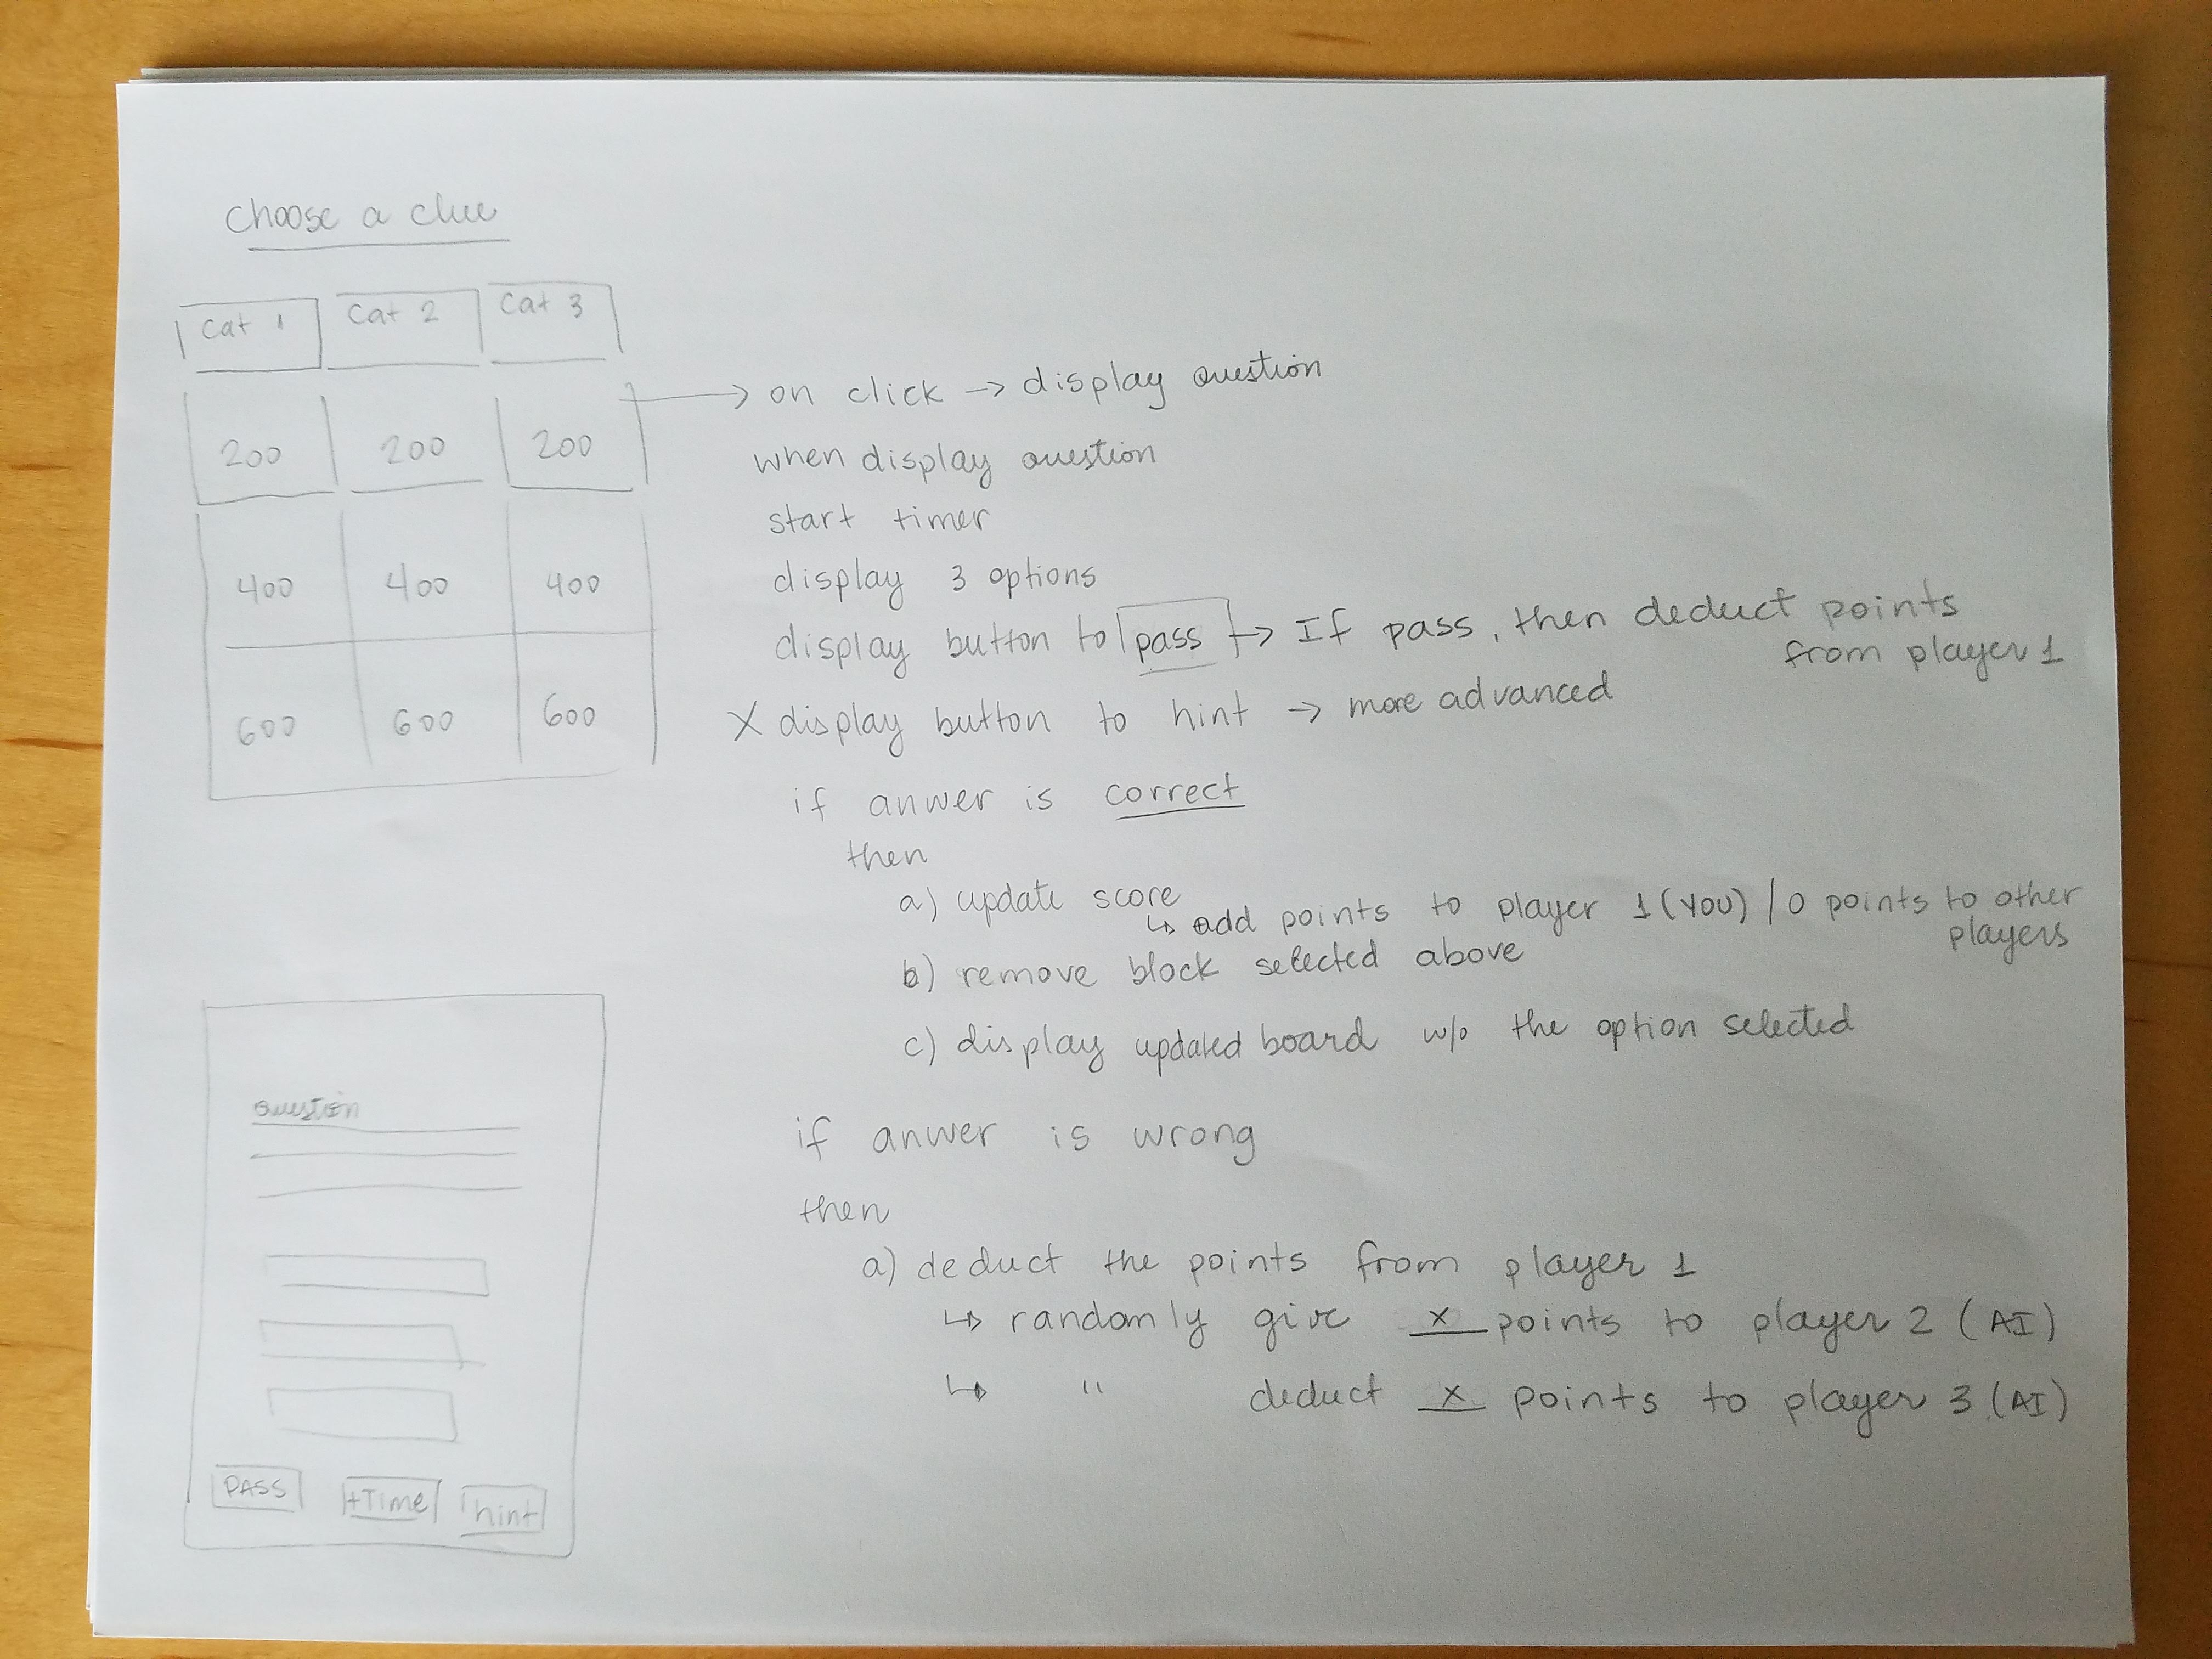 Choose a clue
Cat 1 Cat 2 Cat 3
200 200 200
400 400 400
600 600 600
→ on click → display question
when display question
start timer
display 3 options
display button to pass → If pass, then deduct points
from player 1
X display button to hint → more advanced
if anwer is correct
then
a) update score
↳ add points to player 1 (YOU) / 0 points to other
players
b) remove block selected above
c) display updated board w/o the option selected
if anwer is wrong
then
a) deduct the points from player 1
↳ randomly give x points to player 2 (AI)
↳ " deduct x points to player 3 (AI)
Question
PASS +Time hint